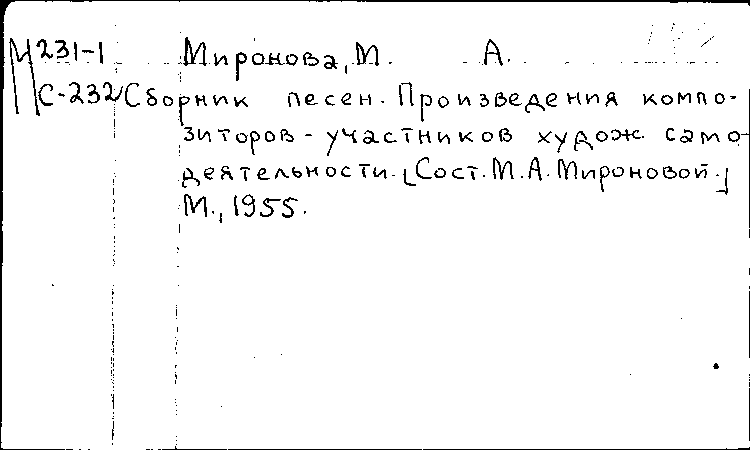 М 231-1 Миронова, М. А.
С-232 Сборник песен. Произведения компо-
зиторов - участников худож. само-
деятельности. [Сост. М. А. Мироновой.]
М., 1955.